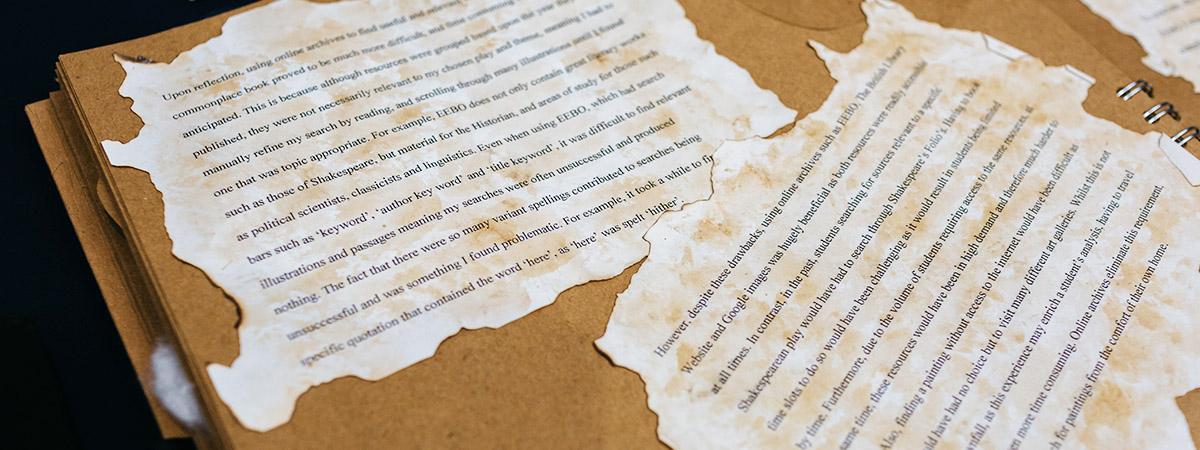 Upon reflection, using online archives to find useful and relevant
commonplace book proved to be much more difficult, and time consuming
anticipated. This is because although resources were grouped based upon the year they
published, they were not necessarily relevant to my chosen play and theme, meaning I had to
manually refine my search by reading, and scrolling through many illustrations until I found
one that was topic appropriate. For example, EEBO does not only contain great literary works
such as those of Shakespeare, but material for the Historian, and areas of study for those such
as political scientists, classicists and linguistics. Even when using EEBO, which had search
bars such as ‘keyword’, ‘author key word’ and ‘title keyword’, it was difficult to find relevant
illustrations and passages meaning my searches were often unsuccessful and produced
nothing. The fact that there were so many variant spellings contributed to searches being
unsuccessful and was something I found problematic. For example, it took a while to
specific quotation that contained the word ‘here’, as ‘here’ was spelt ‘hither’.
However, despite these drawbacks, using online archives such as EEBO, The British Library
Website and Google images was hugely beneficial as both resources were readily accessible
at all times. In contrast, in the past, students searching for sources relevant to a specific
Shakespearean play would have had to search through Shakespeare’s Folio’s. Having to book
time slots to do so would have been challenging as it would result in students being limited
by time. Furthermore, due to the volume of students requiring access to the same resources, at
same time, these resources would have been in high demand and therefore much harder to
Also, finding a painting without access to the internet would have been difficult as
would have had no choice but to visit many different art galleries. Whilst this is not
as this experience may enrich a student’s analysis, having to travel
more time consuming. Online archives eliminate this requirement.
for paintings from the comfort of their own home.